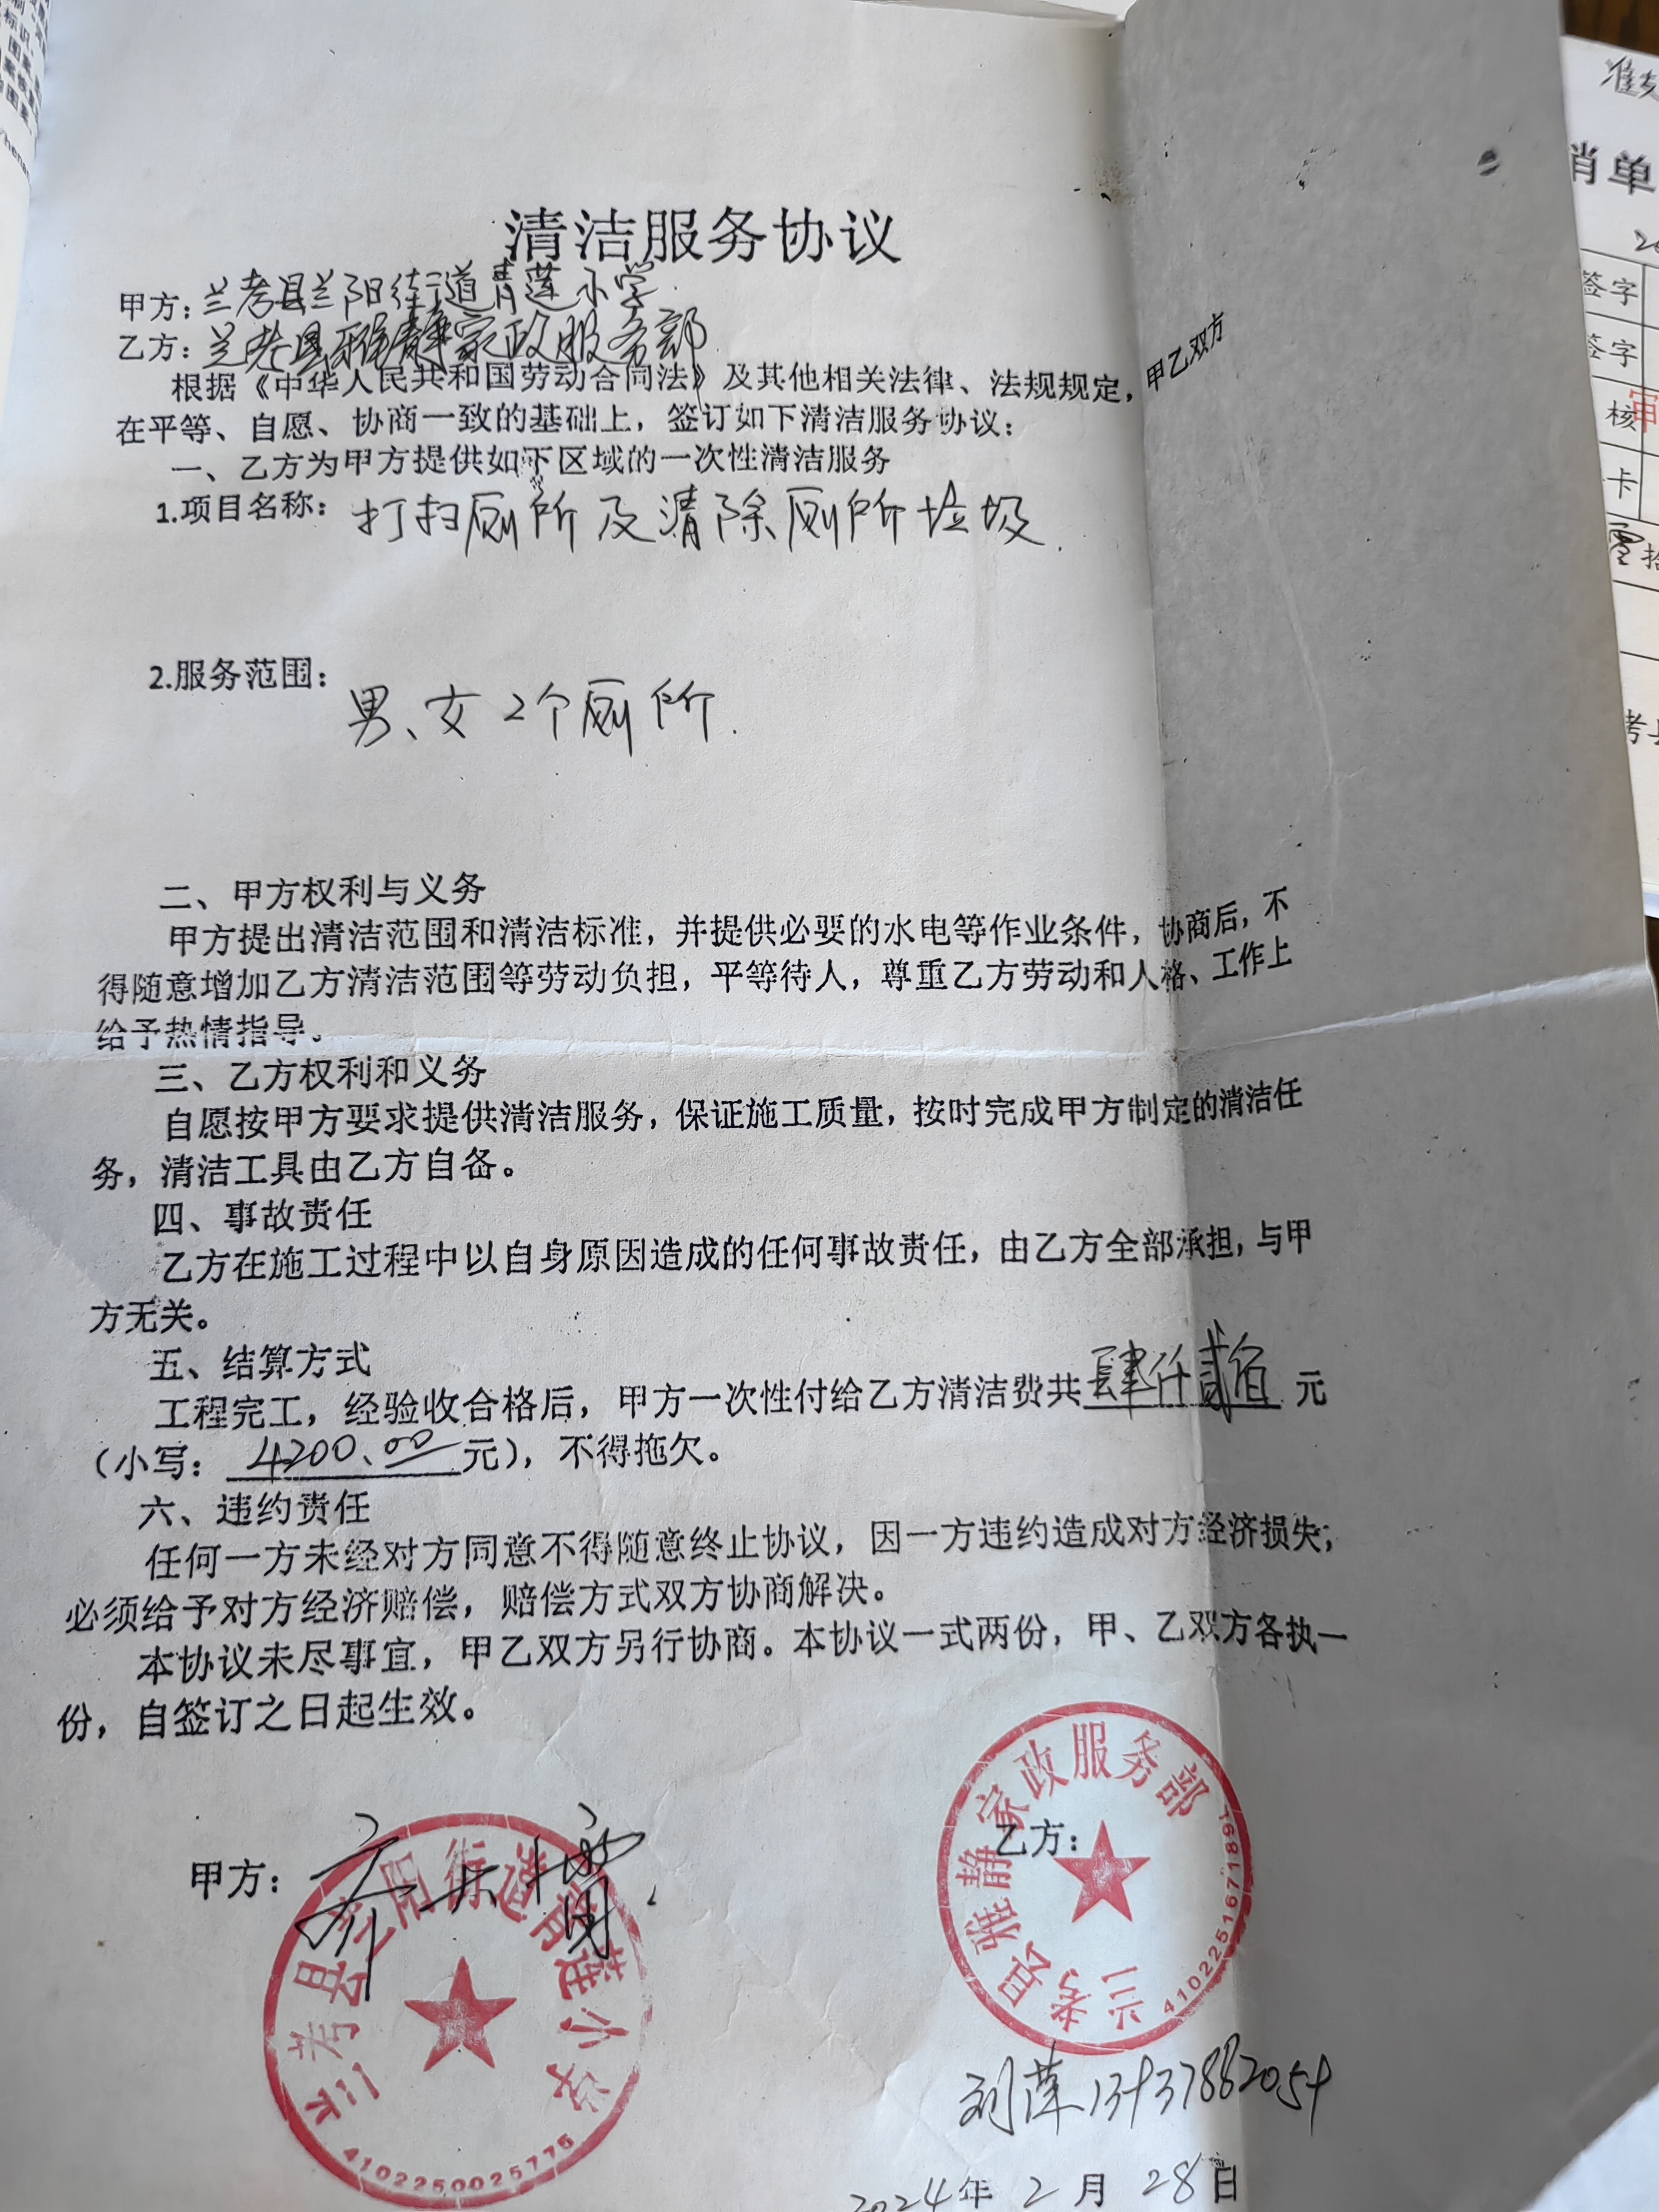 清洁服务协议
甲方：兰考县兰阳街道青莲小学
乙方：兰考县雅静家政服务部
根据《中华人民共和国劳动合同法》及其他相关法律、法规规定，甲乙双方
在平等、自愿、协商一致的基础上，签订如下清洁服务协议：
一、乙方为甲方提供如下区域的一次性清洁服务
1.项目名称：打扫厕所及清除厕所垃圾.
2.服务范围：男、女2个厕所.
二、甲方权利与义务
甲方提出清洁范围和清洁标准，并提供必要的水电等作业条件，协商后，不
得随意增加乙方清洁范围等劳动负担，平等待人，尊重乙方劳动和人格、工作上
给予热情指导。
三、乙方权利和义务
自愿按甲方要求提供清洁服务，保证施工质量，按时完成甲方制定的清洁任
务，清洁工具由乙方自备。
四、事故责任
乙方在施工过程中以自身原因造成的任何事故责任，由乙方全部承担，与甲
方无关。
五、结算方式
工程完工，经验收合格后，甲方一次性付给乙方清洁费共肆仟贰佰元
（小写：4200.00元），不得拖欠。
六、违约责任
任何一方未经对方同意不得随意终止协议，因一方违约造成对方经济损失；
必须给予对方经济赔偿，赔偿方式双方协商解决。
本协议未尽事宜，甲乙双方另行协商。本协议一式两份，甲、乙双方各执一
份，自签订之日起生效。
甲方：
兰考县兰阳街道青莲小学
4102250025775
乙方：
兰考县雅静家政服务部
4102251671897
刘莲13937882059
2024年2月28日
销单
签字
签字
核
卡
零拾
考县